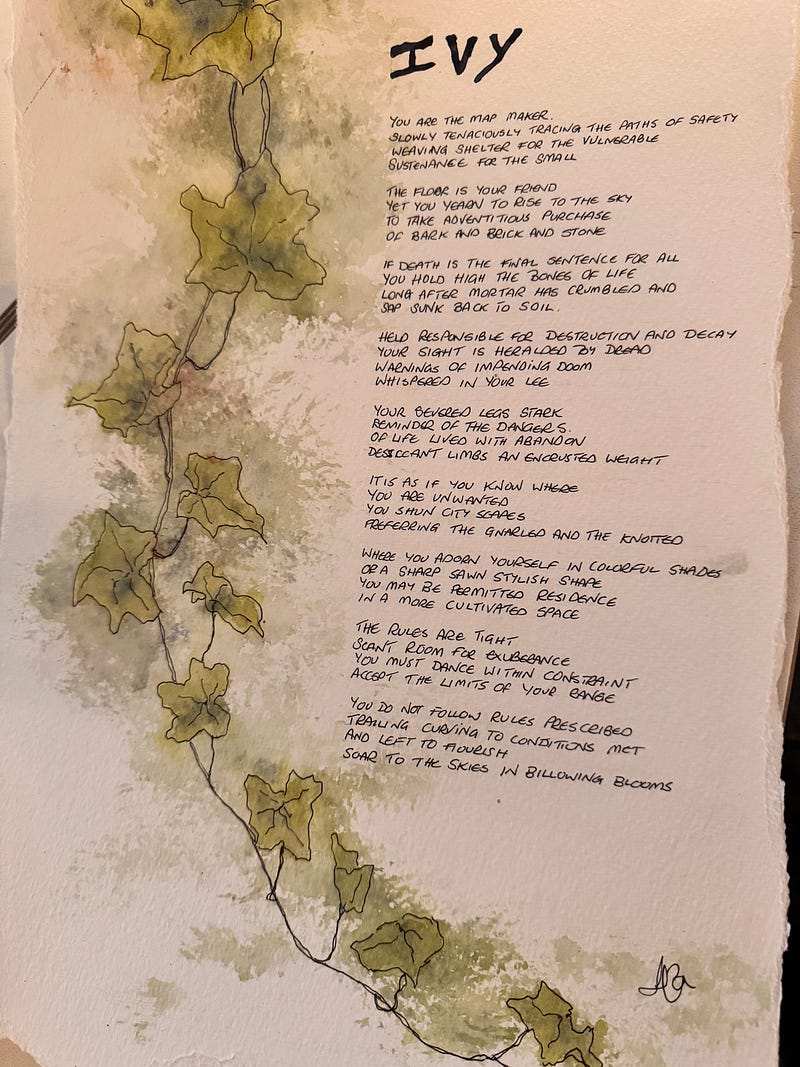 IVY
YOU ARE THE MAP MAKER.
SLOWLY TENACIOUSLY TRACING THE PATHS OF SAFETY
WEAVING SHELTER FOR THE VULNERABLE
SUSTENANCE FOR THE SMALL
THE FLOOR IS YOUR FRIEND
YET YOU YEARN TO RISE TO THE SKY
TO TAKE ADVENTITIOUS PURCHASE
OF BARK AND BRICK AND STONE
IF DEATH IS THE FINAL SENTENCE FOR ALL
YOU HOLD HIGH THE BONES OF LIFE
LONG AFTER MORTAR HAS CRUMBLED AND
SAP SUNK BACK TO SOIL.
HELD RESPONSIBLE FOR DESTRUCTION AND DECAY
YOUR SIGHT IS HERALDED BY DREAD
WARNINGS OF IMPENDING DOOM
WHISPERED IN YOUR LEE
YOUR SEVERED LEGS STARK
REMINDER OF THE DANGERS.
OF LIFE LIVED WITH ABANDON
DESICCANT LIMBS AN ENCRUSTED WEIGHT
IT IS AS IF YOU KNOW WHERE
YOU ARE UNWANTED
YOU SHUN CITY SCAPES
PREFERRING THE GNARLED AND THE KNOTTED
WHERE YOU ADORN YOURSELF IN COLORFUL SHADES
OR A SHARP SAWN STYLISH SHAPE
YOU MAY BE PERMITTED RESIDENCE
IN A MORE CULTIVATED SPACE
THE RULES ARE TIGHT
SCANT ROOM FOR EXUBERANCE
YOU MUST DANCE WITHIN CONSTRAINT
ACCEPT THE LIMITS OF YOUR RANGE
YOU DO NOT FOLLOW RULES PRESCRIBED
TRAILING CURVING TO CONDITIONS MET
AND LEFT TO FLOURISH
SOAR TO THE SKIES IN BILLOWING BLOOMS